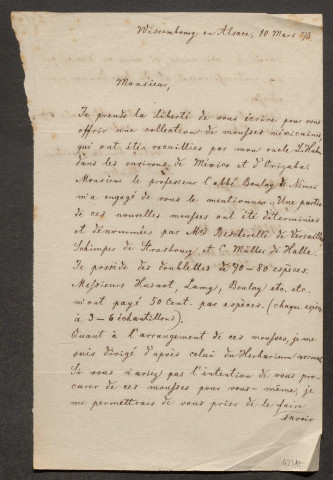 Wissembourg en Alsace, 10 Mars
Monsieur,
Je prends la liberté de vous écrire pour vous
offrir une collection de mousses méxicaines
qui ont étés recueillies par mon oncle L. Hahn
dans les environs de México et d'Orizaba.
Monsieur le professeur l'abbé Boulay de Nimes
m'a engagé de vous le mentionner. Une partie
de ces nouvelles mousses ont été déterminées
et dénommées par Mrs Bescherelle de Versailles
Schimper de Strasbourg, et C. Müller de Halle.
Je possède des doublettes de 70-80 espèces.
Messieurs Husnot, Lamy, Boulay etc. etc.
m'ont payé 50 Cent. par espèces. (chaque espèce
à 3-6 échantillons).
Quant à l'arrangement de ces mousses, je me
suis dirigé d'après celui du Herbarium
Si vous n'aviez pas l'intention de vous pro-
curer de ces mousses pour vous-même, je
me permettrais de vous prier de le faire
savoir